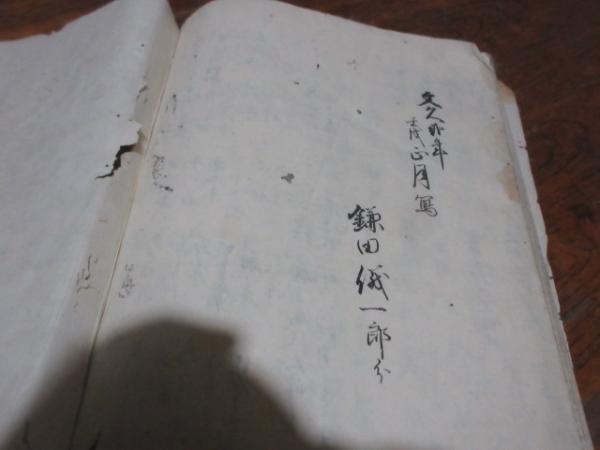 文久弐年
壬戌正月写
鎌田儀一郎分